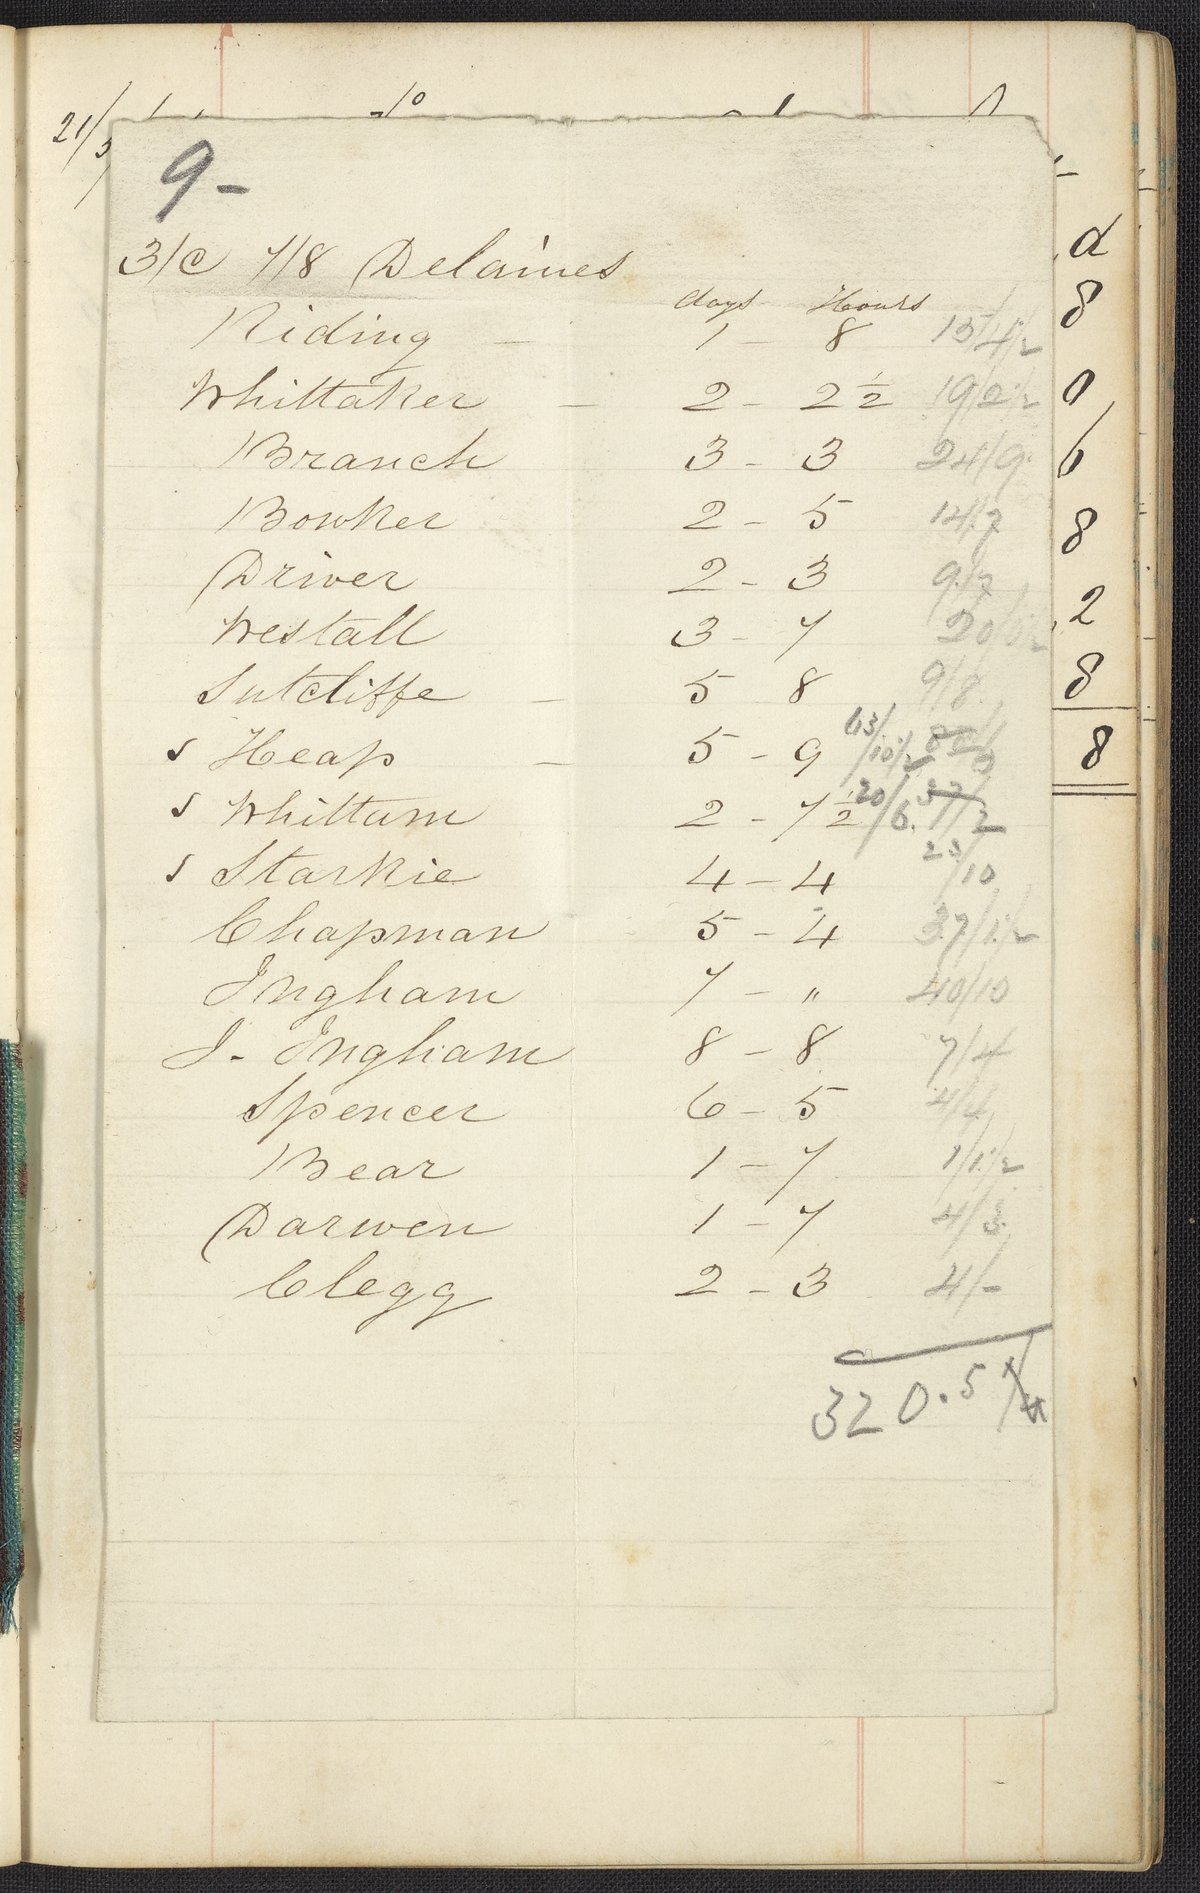 21/5
10
9-
3/c 7/8 Delaines
days Hours
Riding - 1 - 8 15/4½
Whittaker - 2 - 2½ 19/2½
Branch 3 - 3 24/9
Bowker 2 - 5 14/7
Driver 2 - 3 9/7
Westall 3 - 7
Sutcliffe - 5 8 9/8
s Heap - 5 - 9 63/10½
s Whittam 2 - 7½ 20/6
s Starkie 4 - 4 23/10
Chapman 5 - 4 37/1½
Ingham 7 - " 40/10
J. Ingham 8 - 8 7/4
Spencer 6 - 5 4/4
Bear 1 - 7 1/1½
Darwen 1 - 7 4/3
Clegg 2 - 3 4/-
320.5
d
8
0
6
8
2
8
8